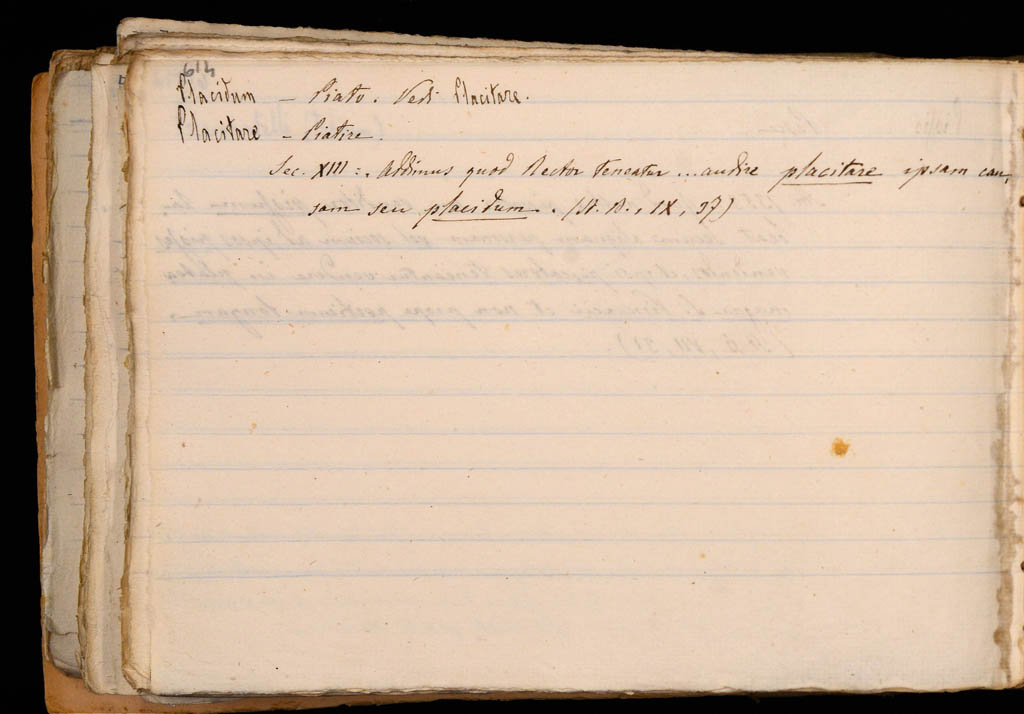 614
Placidum – Piato. Vedi Placitare.
Placitare – Piatire.
Sec. XIII:. Addimus quod Rector teneatur ... audire placitare ipsam cau,
sam seu placidum. (St. B., IX, 37)